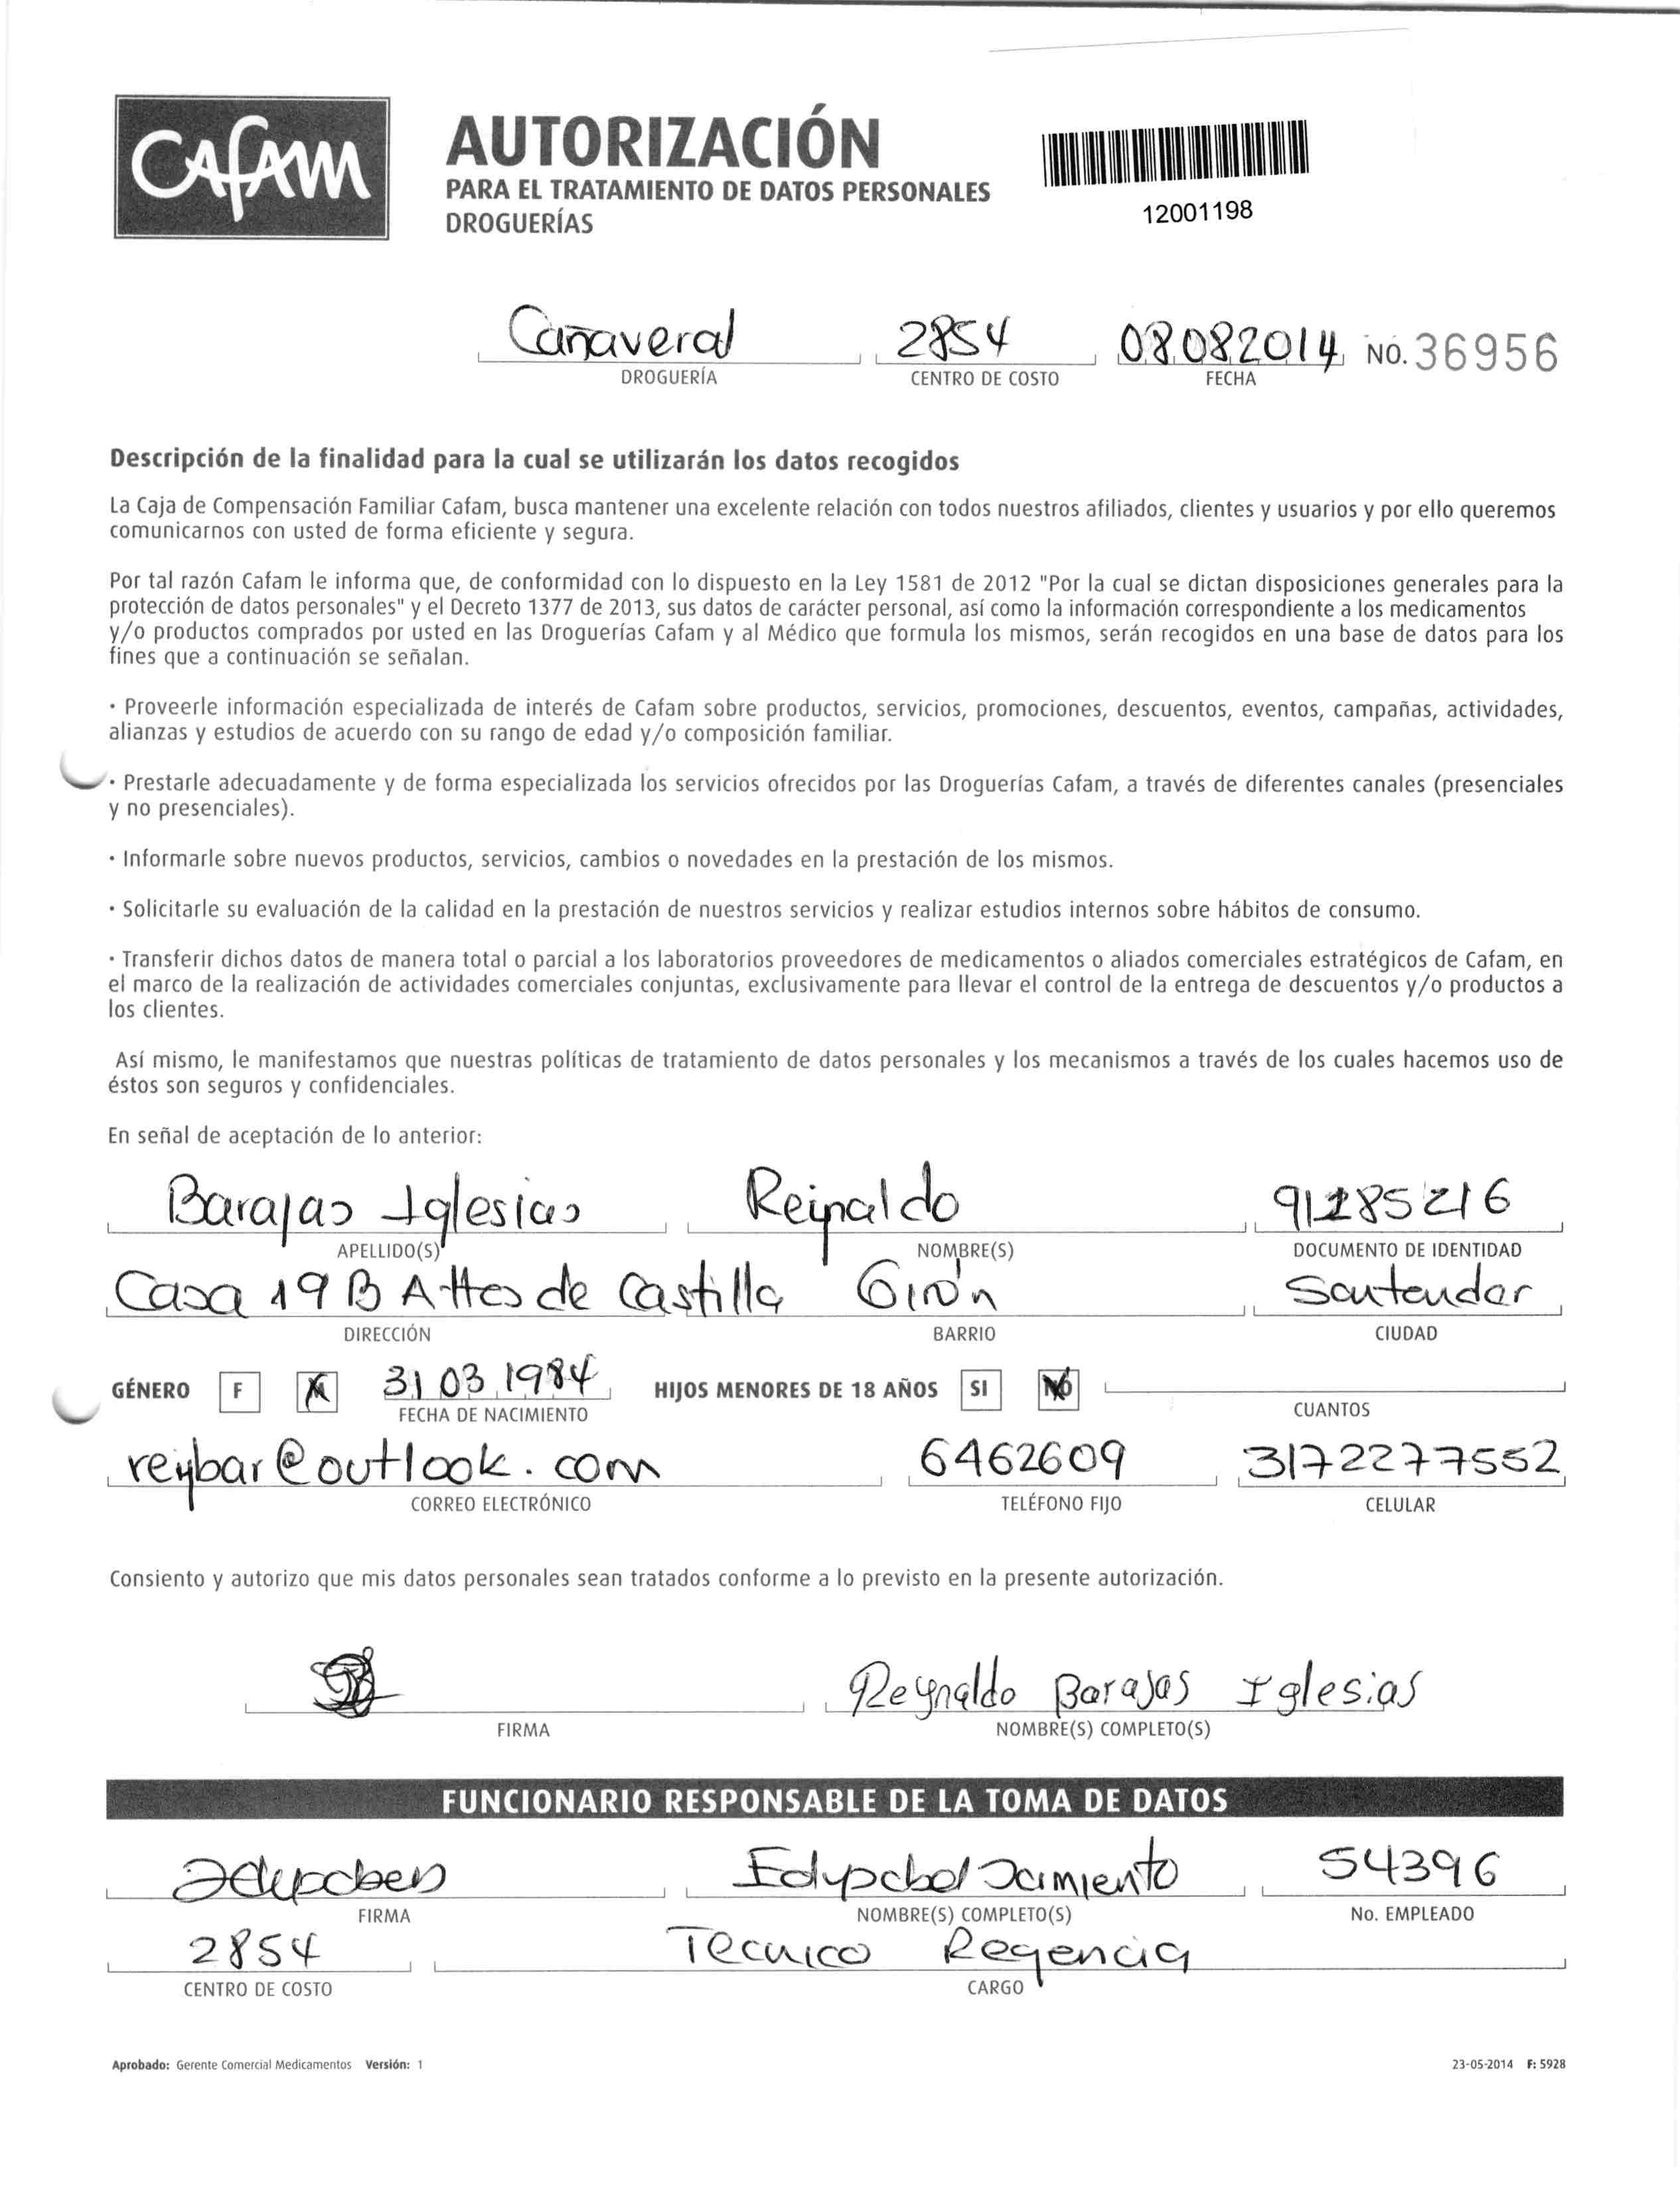 CAFAM
AUTORIZACIÓN
PARA EL TRATAMIENTO DE DATOS PERSONALES
DROGUERÍAS
12001198
Cañaveral 2854 08082014 No. 36956
DROGUERÍA CENTRO DE COSTO FECHA
Descripción de la finalidad para la cual se utilizarán los datos recogidos
La Caja de Compensación Familiar Cafam, busca mantener una excelente relación con todos nuestros afiliados, clientes y usuarios y por ello queremos
comunicarnos con usted de forma eficiente y segura.
Por tal razón Cafam le informa que, de conformidad con lo dispuesto en la Ley 1581 de 2012 "Por la cual se dictan disposiciones generales para la
protección de datos personales" y el Decreto 1377 de 2013, sus datos de carácter personal, así como la información correspondiente a los medicamentos
y/o productos comprados por usted en las Droguerías Cafam y al Médico que formula los mismos, serán recogidos en una base de datos para los
fines que a continuación se señalan.
· Proveerle información especializada de interés de Cafam sobre productos, servicios, promociones, descuentos, eventos, campañas, actividades,
alianzas y estudios de acuerdo con su rango de edad y/o composición familiar.
· Prestarle adecuadamente y de forma especializada los servicios ofrecidos por las Droguerías Cafam, a través de diferentes canales (presenciales
y no presenciales).
· Informarle sobre nuevos productos, servicios, cambios o novedades en la prestación de los mismos.
· Solicitarle su evaluación de la calidad en la prestación de nuestros servicios y realizar estudios internos sobre hábitos de consumo.
· Transferir dichos datos de manera total o parcial a los laboratorios proveedores de medicamentos o aliados comerciales estratégicos de Cafam, en
el marco de la realización de actividades comerciales conjuntas, exclusivamente para llevar el control de la entrega de descuentos y/o productos a
los clientes.
Así mismo, le manifestamos que nuestras políticas de tratamiento de datos personales y los mecanismos a través de los cuales hacemos uso de
éstos son seguros y confidenciales.
En señal de aceptación de lo anterior:
Barajas Iglesias Reinaldo 91285216
APELLIDO(S) NOMBRE(S) DOCUMENTO DE IDENTIDAD
Casa 19 B Attes de Castilla Girón Santander
DIRECCIÓN BARRIO CIUDAD
GÉNERO F M 31 03 1984 HIJOS MENORES DE 18 AÑOS SI NO
FECHA DE NACIMIENTO CUANTOS
reybar@outlook.com 6462609 3172277552
CORREO ELECTRÓNICO TELÉFONO FIJO CELULAR
Consiento y autorizo que mis datos personales sean tratados conforme a lo previsto en la presente autorización.
Reynaldo Barajas Iglesias
FIRMA NOMBRE(S) COMPLETO(S)
FUNCIONARIO RESPONSABLE DE LA TOMA DE DATOS
Sarmiento 54396
FIRMA NOMBRE(S) COMPLETO(S) No. EMPLEADO
2854 Tecnico Regencia
CENTRO DE COSTO CARGO
Aprobado: Gerente Comercial Medicamentos Versión: 1 23-05-2014 F: 5928